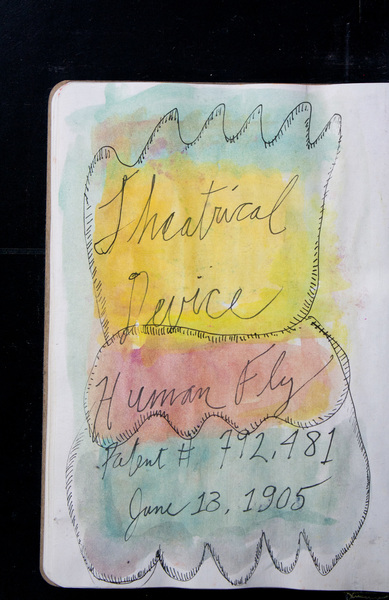 Theatrical
Device
Human Fly
Patent # 792,481
June 13, 1905